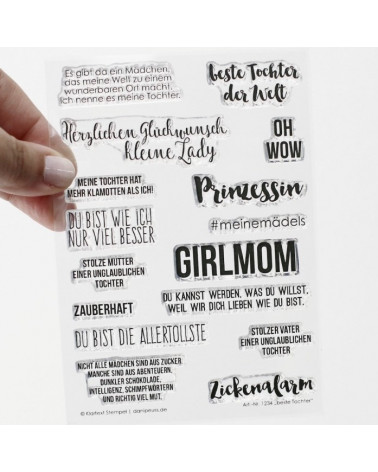 Es gibt da ein Mädchen,
das meine Welt zu einem
wunderbaren Ort macht.
Ich nenne es meine Tochter.
beste Tochter
der Welt
Herzlichen Glückwunsch
kleine Lady
OH
WOW
MEINE TOCHTER HAT
MEHR KLAMOTTEN ALS ICH!
Prinzessin
#meinemädels
DU BIST WIE ICH
NUR VIEL BESSER
GIRLMOM
STOLZE MUTTER
EINER UNGLAUBLICHEN
TOCHTER
DU KANNST WERDEN, WAS DU WILLST.
WEIL WIR DICH LIEBEN WIE DU BIST.
ZAUBERHAFT
DU BIST DIE ALLERTOLLSTE
STOLZER VATER
EINER UNGLAUBLICHEN
TOCHTER
NICHT ALLE MÄDCHEN SIND AUS ZUCKER.
MANCHE SIND AUS ABENTEUERN,
DUNKLER SCHOKOLADE,
INTELLIGENZ, SCHIMPFWÖRTERN
UND RICHTIG VIEL MUT.
Zickenalarm
© Klartext Stempel | danipeuss.de
Art.-Nr. 1234 „Beste Tochter"